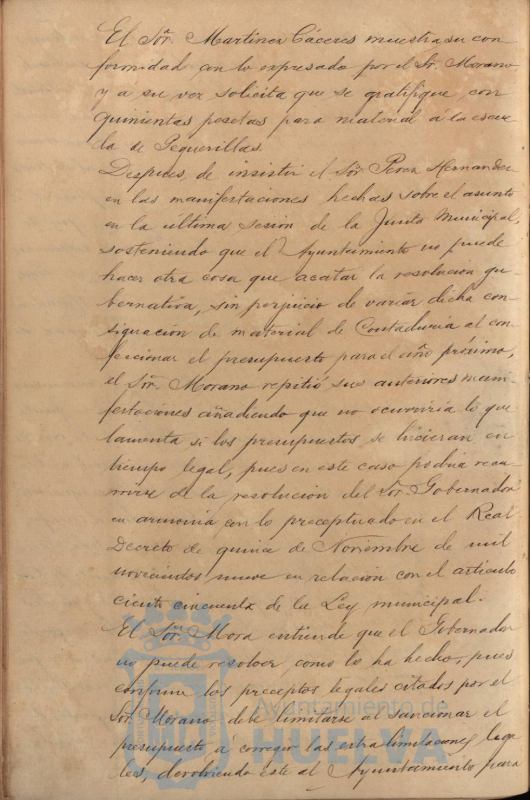 El Sor. Martinez Cáceres muestra su con
formidad con lo expresado por el Sr. Morano
y a su vez solicita que se gratifique con
quinientas pesetas para material á la escue
la de Peguerillas.
Despues de insistir el Sor. Perez Hernandez
en las manifestaciones hechas sobre el asunto
en la última sesion de la Junta Municipal,
sosteniendo que el Ayuntamiento no puede
hacer otra cosa que acatar la resolucion gu
bernativa, sin perjuicio de variar dicha con
signacion de material de Contaduria al con
feccionar el presupuesto para el año próximo,
el Sor. Morano repitió sus anteriores mani
festaciones añadiendo que no ocurriria lo que
lamenta si los presupuestos se hicieran en
tiempo legal, pues en este caso podria recu
rrirse de la resolucion del Sor. Gobernador
en armonia con lo preceptuado en el Real
Decreto de quince de Noviembre de mil
novecientos nueve en relacion con el articulo
ciento cincuenta de la Ley municipal.
El Sor. Mora entiende que el Gobernador
no puede resolver como lo ha hecho, pues
conforme los preceptos legales citados por el
Sor. Morano debe limitarse al sancionar el
presupuesto á corregir las extralimitaciones lega
les, devolviendo éste al Ayuntamiento para
Ayuntamiento de
HUELVA